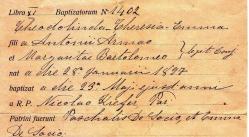 Libro XI Baptizatorum N° 1402
Theodolinda Theresia Emma
fili a Antonii Armao
et Margaritae Bartolomeo
nat a die 28 januarii 1897
baptizat a die 23 Maji ejusd anni
a R. P. Nicolao
Patrini fuerunt Paschalis De Socio et Emma
De Socio